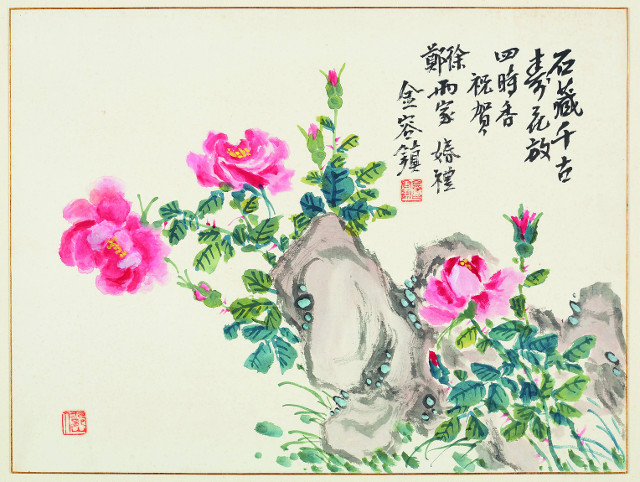 石藏千古
壽花放
四時香
祝賀
徐
鄭兩家 婚禮
金容鎮